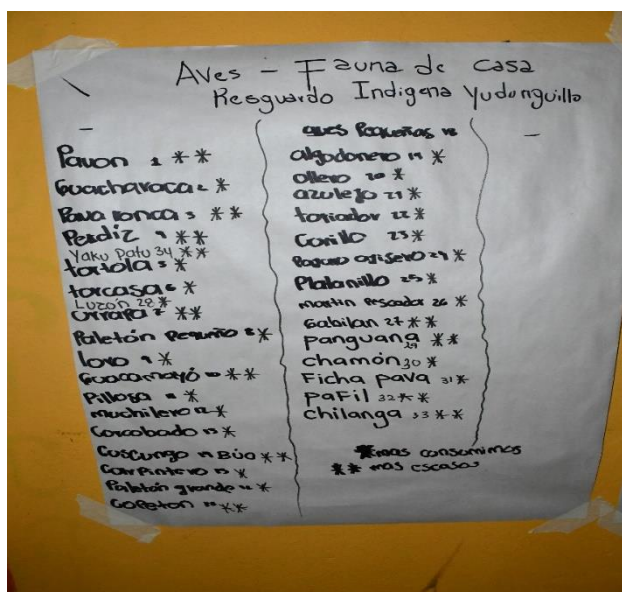 Aves - Fauna de casa
Resguardo Indigena Yudunguillo
Pavon 1 **
Guacharaca 2 *
Pava ronca 3 **
Perdiz 4 **
Yaku Patu 34 **
tortola 5 *
torcasa 6 *
Luzón 28 *
Urrapa 7 **
Paletón Pequeño 8 *
loro 9 *
Guacamayo 10 **
Pillosa 11 *
muchilero 12 *
Corcobado 13 *
Cuscungo 14 BÚO **
Carpintero 15 *
Paletón grande 16 *
Copeton 17 **
aves Pequeñas 18
algodonero 19 *
ollero 20 *
azulejo 21 *
toriador 22 *
Corillo 23 *
24 *
Platanillo 25 *
martin Pescador 26 *
Gabilan 27 **
panguana 29 **
chamón 30 *
Ficha pava 31 *
paFil 32 **
chilanga 33 **
* mas consumimos
** mas escasos